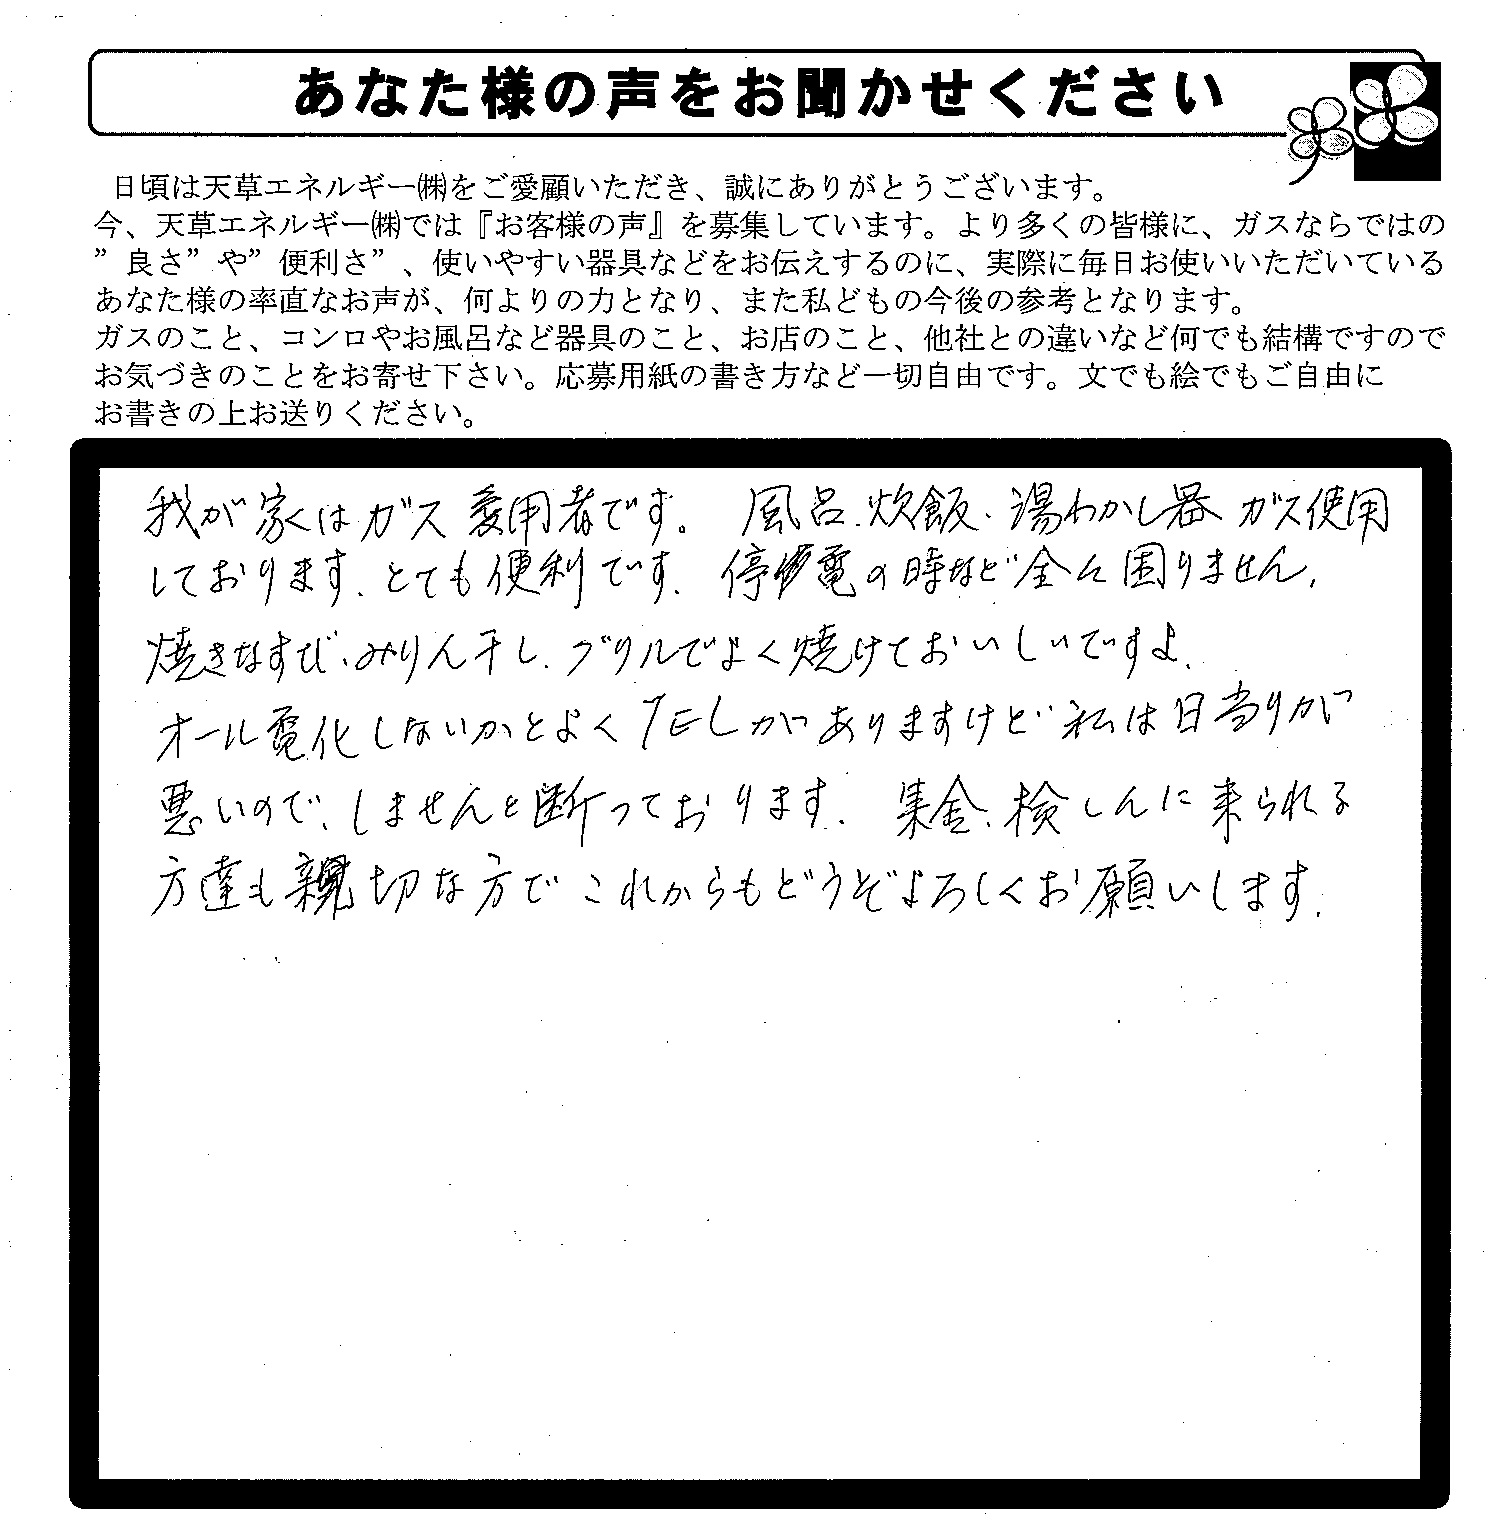 あなた様の声をお聞かせください
日頃は天草エネルギー㈱をご愛顧いただき、誠にありがとうございます。
今、天草エネルギー㈱では『お客様の声』を募集しています。より多くの皆様に、ガスならではの
”良さ”や”便利さ”、使いやすい器具などをお伝えするのに、実際に毎日お使いいただいている
あなた様の率直なお声が、何よりの力となり、また私どもの今後の参考となります。
ガスのこと、コンロやお風呂など器具のこと、お店のこと、他社との違いなど何でも結構ですので
お気づきのことをお寄せ下さい。応募用紙の書き方など一切自由です。文でも絵でもご自由に
お書きの上お送りください。
我が家くはガス愛用者です。風呂、炊飯、湯わかし器 ガス使用
しております、とても便利です、停電の時など全々困りません、
焼きなすび、みりん干し、ブリルでよく焼けておいしいですよ、
オール電化しないかとよくTELがありますけど私は日当りが
悪いので、しませんと断っております、集金、検しんに来られる
方達も親切な方でこれからもどうぞよろしくお願いします、